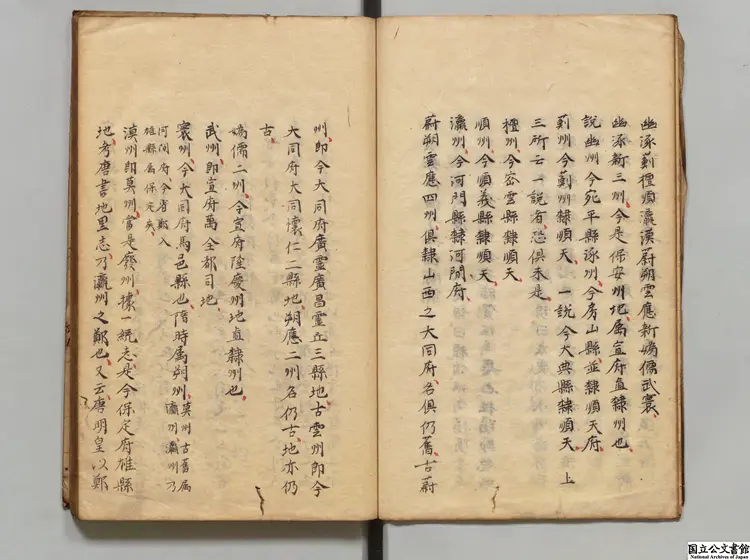 幽涿薊檀順瀛漠蔚朔雲應新媯儒武寰
幽涿新三州今是保安州地屬宣府直隸州也
說幽州今宛平縣涿州今房山縣並隸順天府
薊州今薊州隸順天一說今大興縣隸順天上
三所云一說者恐俱未是
檀州今密雲縣隸順天
順州今順義縣隸順天
瀛州今河間縣隸河間府
蔚朔雲應四州俱隸山西之大同府名俱仍舊古蔚
州即今大同府廣靈廣昌靈丘三縣地古雲州即今
大同府大同懷仁二縣地朔應二州名仍古地亦仍
古
媯儒二州今宣府隆慶州地直隸州也
武州即宣府萬全都司地
寰州今大同府馬邑縣也隋時屬朔州莫州古舊属瀛州瀛州乃
河間府今省鄚入
雄縣属保定矣
漠州即莫州當是廢州據一統志是今保定府雄縣
地考唐書地里志乃瀛州之鄚也又云唐明皇以鄚
国立公文書館
National Archives of Japan